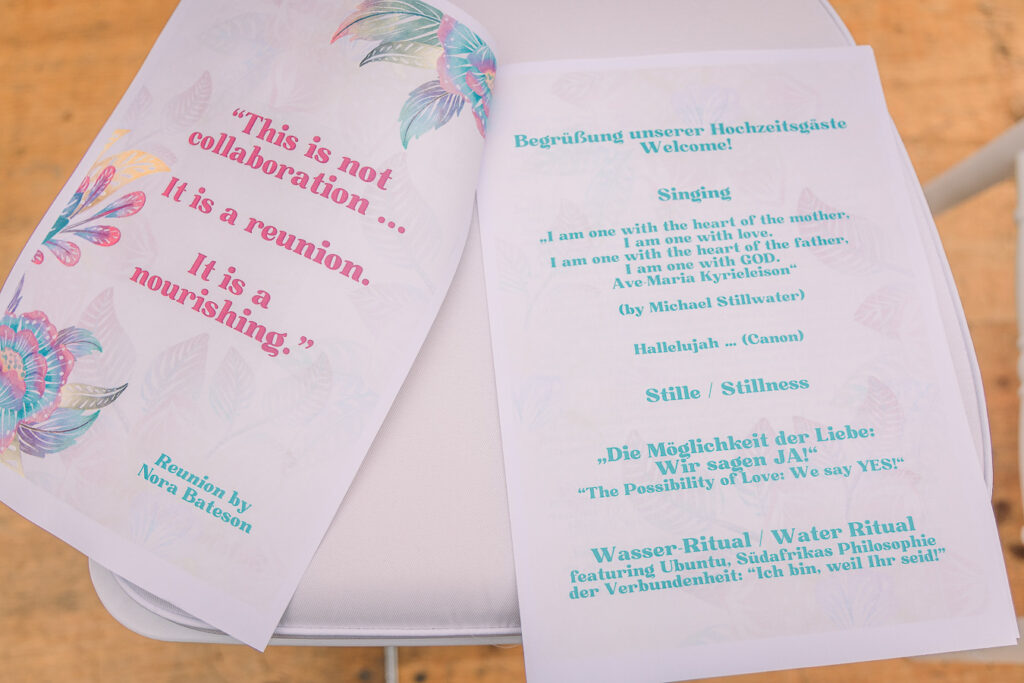 “This is not
collaboration ...
It is a reunion.
It is a
nourishing.”
Reunion by
Nora Bateson
Begrüßung unserer Hochzeitsgäste
Welcome!
Singing
„I am one with the heart of the mother,
I am one with love.
I am one with the heart of the father,
I am one with GOD.
Ave-Maria Kyrieleison“
(by Michael Stillwater)
Hallelujah ... (Canon)
Stille / Stillness
„Die Möglichkeit der Liebe:
Wir sagen JA!“
“The Possibility of Love: We say YES!“
Wasser-Ritual / Water Ritual
featuring Ubuntu, Südafrikas Philosophie
der Verbundenheit: “Ich bin, weil Ihr seid!”